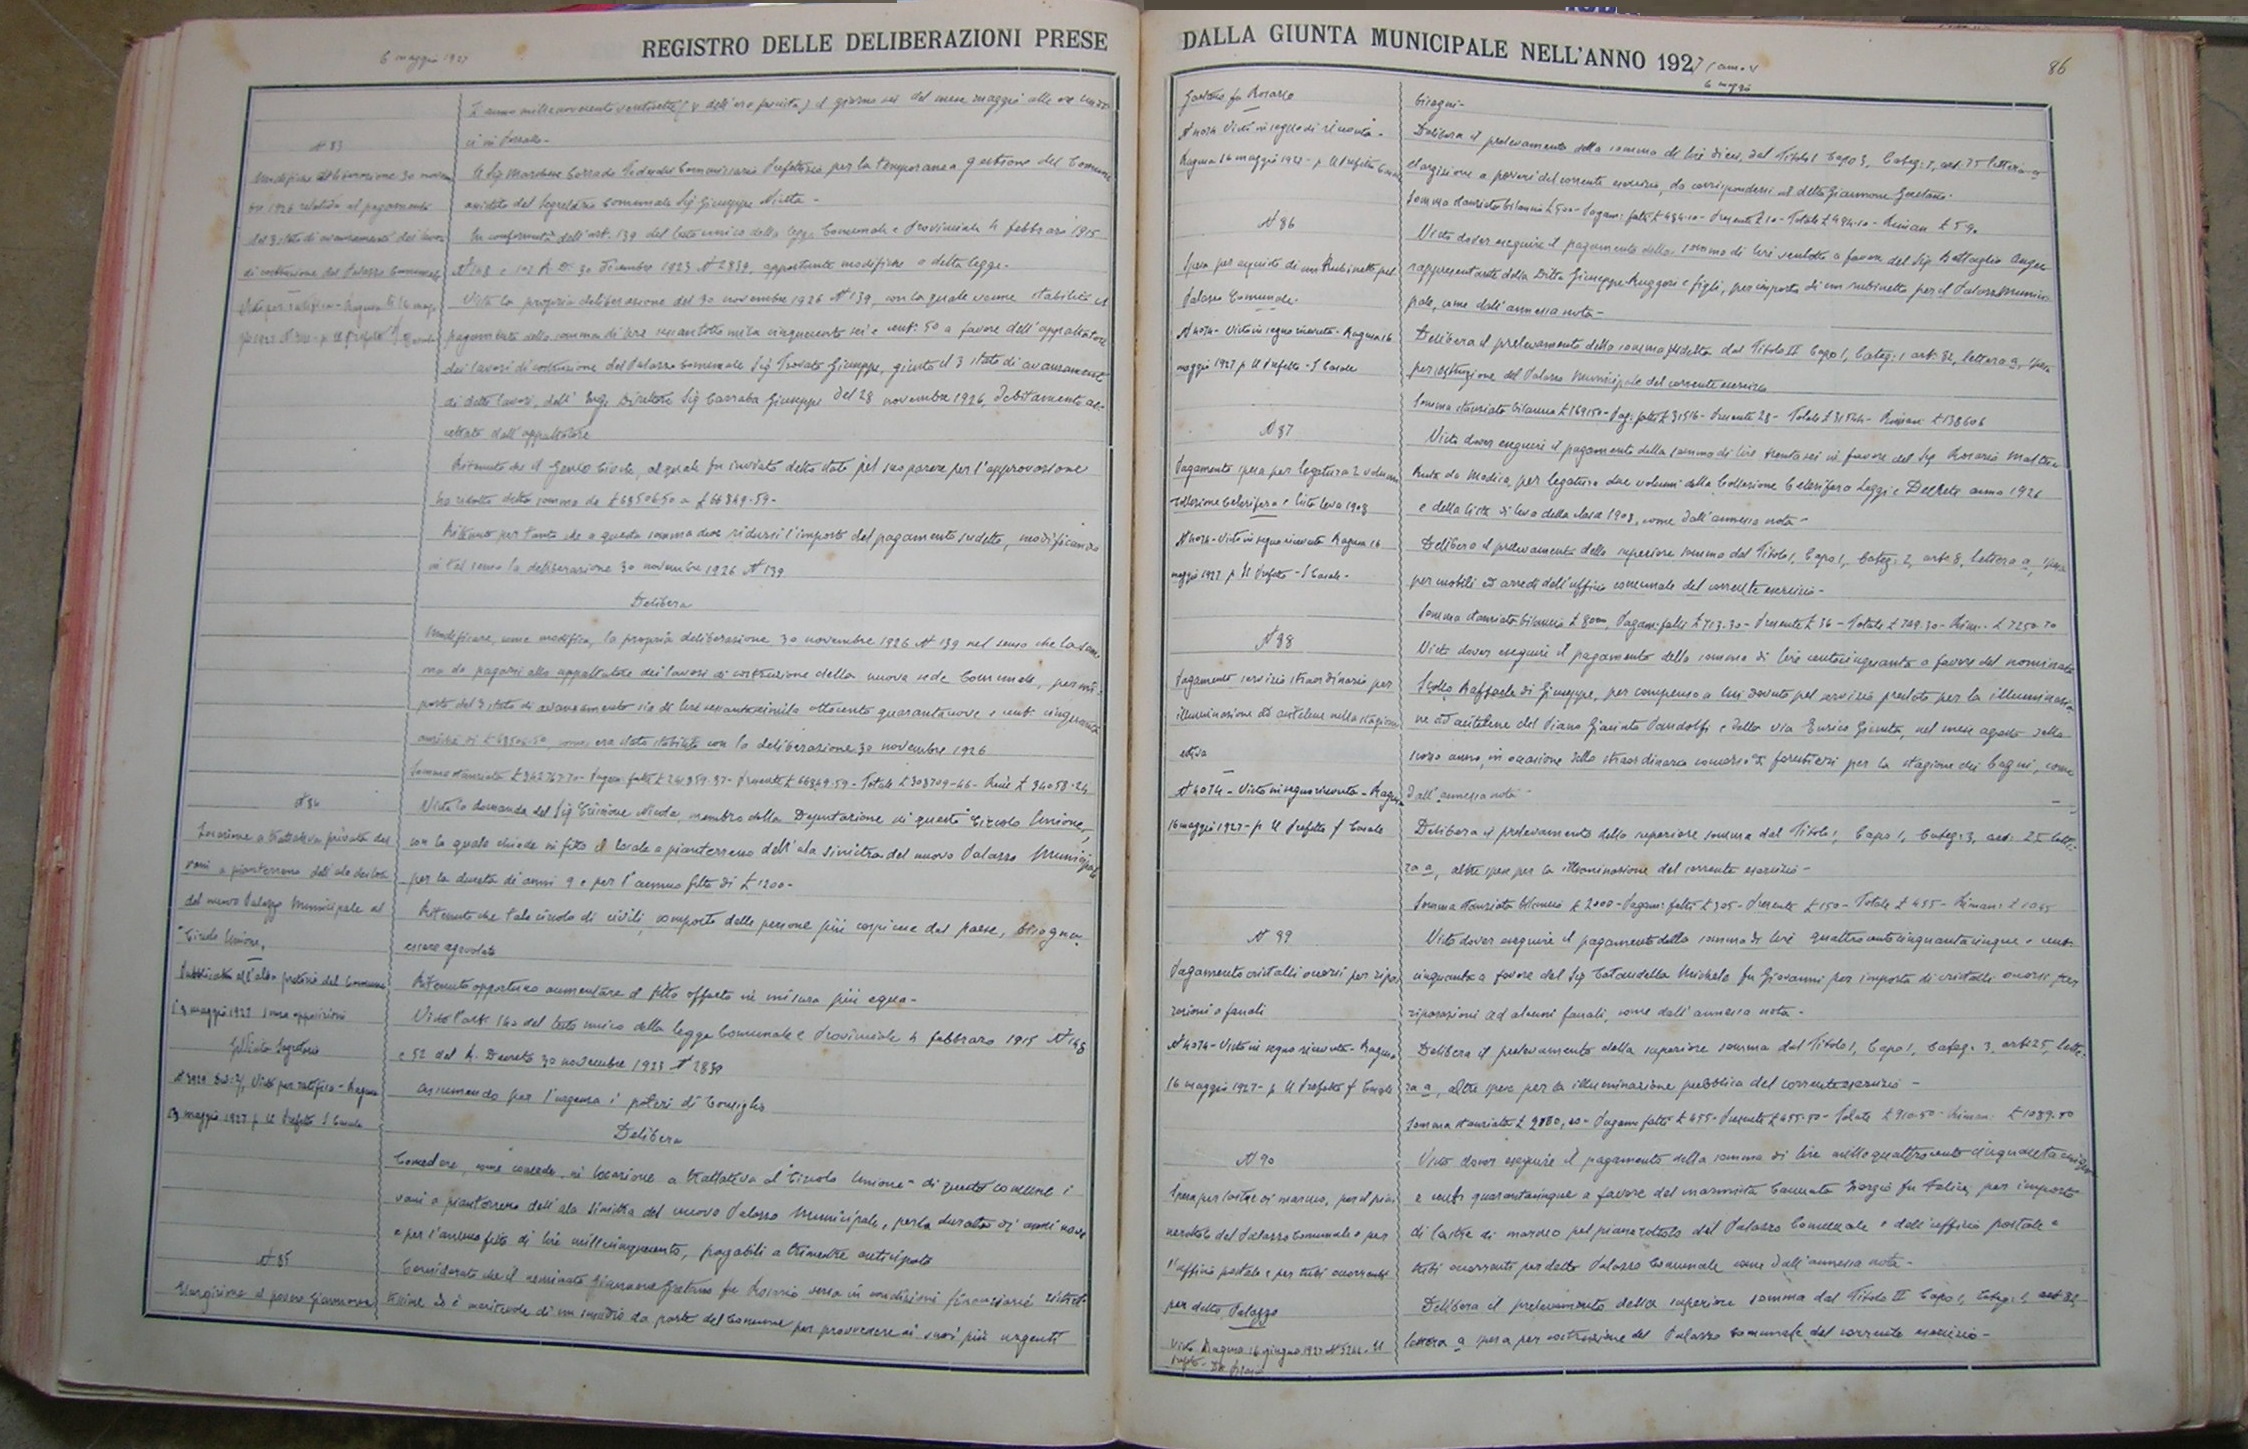 6 maggio 1927
REGISTRO DELLE DELIBERAZIONI PRESE
L'anno millenovecentoventisette (V dell'era fascista) il giorno sei del mese maggio alle ore undi-
ci in Pozzallo-
Il Sig. Marchese Corrado Commissario Prefettizio per la temporanea gestione del Comune
assistito dal Segretario Comunale Sig. Giuseppe
In conformità dell'art. 139 del testo unico della legge Comunale e Provinciale 4 febbraio 1915
N. 148 e 107 R. D. 30 dicembre 1923 N 2839, apportante modifiche a detta legge-
Vista la propria deliberazione del 30 novembre 1926 N 139, con la quale venne stabilito il
pagamento della somma di lire sessantotto mila cinquecento sei e cent. 50 a favore dell'appaltatore
dei lavori di costruzione del Palazzo Comunale Sig. Trovato Giuseppe, giusto il 3 stato di avanzamento
di detti lavori, dell' Ing. Direttore Sig. Carraba Giuseppe del 28 novembre 1926, debitamente ac-
cettato dall'appaltatore
Ritenuto che il Genio Civile, al quale fu inviato detto stato pel suo parere per l'approvazione
ha ridotto detta somma da £ 68506.50 a £ 66849.59-
Ritenuto per tanto che a questa somma deve ridursi l'importo del pagamento sudetto, modificando
in tal senso la deliberazione 30 novembre 1926 N 139
Delibera
Modificare, come modifica, la propria deliberazione 30 novembre 1926 N 139 nel senso che la som-
ma da pagarsi allo appaltatore dei lavori di costruzione della nuova sede Comunale, per im-
porto del 3 stato di avanzamento sia di lire sessantaseimila ottocento quarantanove e cent. cinquanta
anziché di £ 68506.50, come era stato stabilito con la deliberazione 30 novembre 1926
N 83
Modifica deliberazione 30 novem
bre 1926 relativa al pagamento
del 3 stato di avanzamento dei lavori
di costruzione del Palazzo Comunale
N 84
Locazione a trattativa privata dei
vani a pianterreno dell'ala sinistra
del nuovo Palazzo Municipale al
"Circolo Unione"
Pubblicata all'albo pretorio del Comune
maggio 1927 senza opposizioni
Il Segretario
Visto per ratifica - Ragusa
maggio 1927 p. Il Prefetto
Vista la domanda del Sig. Nicola, membro della Deputazione di questo Circolo Unione,
con la quale chiede in fitto il locale a pianterreno dell'ala sinistra del nuovo Palazzo Municipale
per la durata di anni 9 e per l'annuo fitto di £ 1200-
Ritenuto che tale circolo di civili, composto delle persone più cospicue del paese, bisogna
essere agevolato
Ritenuto opportuno aumentare il fitto offerto in misura più equa-
Visto l'art. 140 del testo unico della legge Comunale e Provinciale 4 febbraio 1915 N 148
e 52 del R. Decreto 30 novembre 1923 N 2839
Assumendo per l'urgenza i poteri di Consiglio
Delibera
Concedere, come concede, in locazione a trattativa al "Circolo Unione" di questo comune i
vani a pianterreno dell'ala sinistra del nuovo Palazzo Municipale, per la durata di anni nove
e per l'annuo fitto di lire millecinquecento, pagabili a trimestre anticipato
N 85
Elargizione al povero Giannone
Considerato che il nominato Giannone Gaetano fu Rosario versa in condizioni finanziarie ristret-
tissime ed è meritevole di un sussidio da parte del Comune per provvedere ai suoi più urgenti
DALLA GIUNTA MUNICIPALE NELL'ANNO 1927
6 maggio
86
Gaetano fu Rosario
N 4074 Visto in segno di ricevuta-
Ragusa 16 maggio 1927- p. Il Prefetto
bisogni-
Delibera il prelevamento della somma di lire dieci, dal Titolo I Capo 3, Categ. 7, art. 75 lettera a
elargizione a poveri del corrente esercizio, da corrispondersi al detto Giannone Gaetano-
Somma stanziata bilancio £ 500- Pagam. fatti £ 484.10- Presente £ 10- Totale £ 494.10- Riman. £ 5.90
N 86
Spesa per acquisto di un Rubinetto pel
Palazzo Comunale-
N 4074- Visto in segno ricevuta- Ragusa 16
maggio 1927 p. Il Prefetto -
Visto dover eseguire il pagamento della somma di lire ventotto a favore del Sig. Battaglia
rappresentante della Ditta Giuseppe Ruggeri e figli, per importo di un rubinetto per il Palazzo Munici-
pale, come dall'annessa nota-
Delibera il prelevamento della somma predetta dal Titolo II Capo 1, Categ. 1 art. 82, lettera a, spesa
per costruzione del Palazzo Municipale del corrente esercizio
Somma stanziata bilancio £ 169150- Pag. fatti £ 31516- Presente 28- Totale £ 31544- Riman. £ 138606
N 87
Pagamento spesa per legatura 2 volumi
collezione Celerifera e lista leva 1908
N 4074- Visto in segno ricevuta Ragusa 16
maggio 1927 p. Il Prefetto -
Visto dover eseguire il pagamento della somma di lire trentasei in favore del Sig. Rosario
da Modica, per legatura due volumi della Collezione Celerifera Leggi e Decreti anno 1926
e della lista di leva della classe 1908, come dall'annessa nota-
Delibera il prelevamento della superiore somma dal Titolo I, Capo I, Categ. 2, art. 8, lettera a, spesa
per mobili ed arredi dell'ufficio comunale del corrente esercizio-
Somma stanziata bilancio £ 8000, Pagam. fatti £ 713.30- Presente £ 36- Totale £ 749.30- Rim. £ 7250.70
N 88
Pagamento servizio straordinario per
illuminazione ad acetilene nella stagione
estiva
N 4074- Visto in segno ricevuta- Ragusa
16 maggio 1927- p. Il Prefetto
Visto dover eseguire il pagamento della somma di lire centocinquanta a favore del nominato
Raffaele di Giuseppe, per compenso a lui dovuto pel servizio prestato per la illuminazio-
ne ad acetilene del Piano Giacinto Pandolfi e della Via Enrico Giunta, nel mese agosto dello
scorso anno, in occasione dello straordinario concorso di forestieri per la stagione dei bagni, come
dall'annessa nota-
Delibera il prelevamento della superiore somma dal Titolo I, Capo I, Categ. 3, art. 25 lette-
ra a, altre spese per la illuminazione del corrente esercizio-
Somma stanziata bilancio £ 2000- Pagam. fatti £ 305- Presente £ 150- Totale £ 455- Riman. £ 1545
N 99
Pagamento cristalli occorsi per ripa-
razioni a fanali
N 4074- Visto in segno ricevuta- Ragusa
16 maggio 1927- p. Il Prefetto
Visto dover eseguire il pagamento della somma di lire quattrocentocinquantacinque e cent.
cinquanta a favore del Sig. Michele fu Giovanni per importo di cristalli occorsi per
riparazioni ad alcuni fanali, come dall'annessa nota-
Delibera il prelevamento della superiore somma dal Titolo I, Capo I, Categ. 3, art. 25, lette-
ra a, altre spese per la illuminazione pubblica del corrente esercizio-
Somma stanziata £ 2000,00- Pagam. fatti £ 455- Presente £ 455.50- Totale £ 910.50- Riman. £ 1089.50
N 90
Spesa per lastre di marmo, per il pia-
nerottolo del Palazzo Comunale e per
l'ufficio postale e per tubi occorrenti
per detto Palazzo
Visto Ragusa 16 giugno 1927
Visto dover eseguire il pagamento della somma di lire millequattrocento cinquantacinque
e cent. quarantacinque a favore del marmista Giorgio fu Felice, per importo
di lastre di marmo pel pianerottolo del Palazzo Comunale e dell'ufficio postale e
tubi occorrenti per detto Palazzo Comunale come dall'annessa nota-
Delibera il prelevamento della superiore somma dal Titolo II Capo I, Categ. 1, art. 82,
lettera a spesa per costruzione del Palazzo Comunale del corrente esercizio-